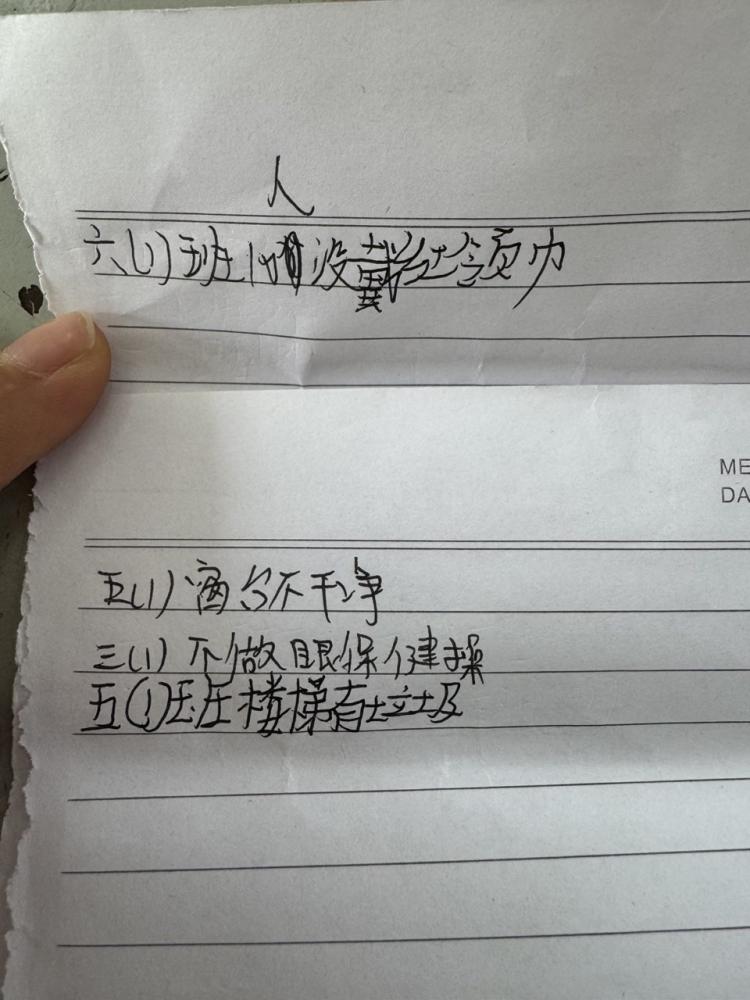 人
六(1)班1个没戴红领巾
ME
DA
五(1)窗台不干净
三(1)不做眼保健操
五(1)班楼梯有垃圾